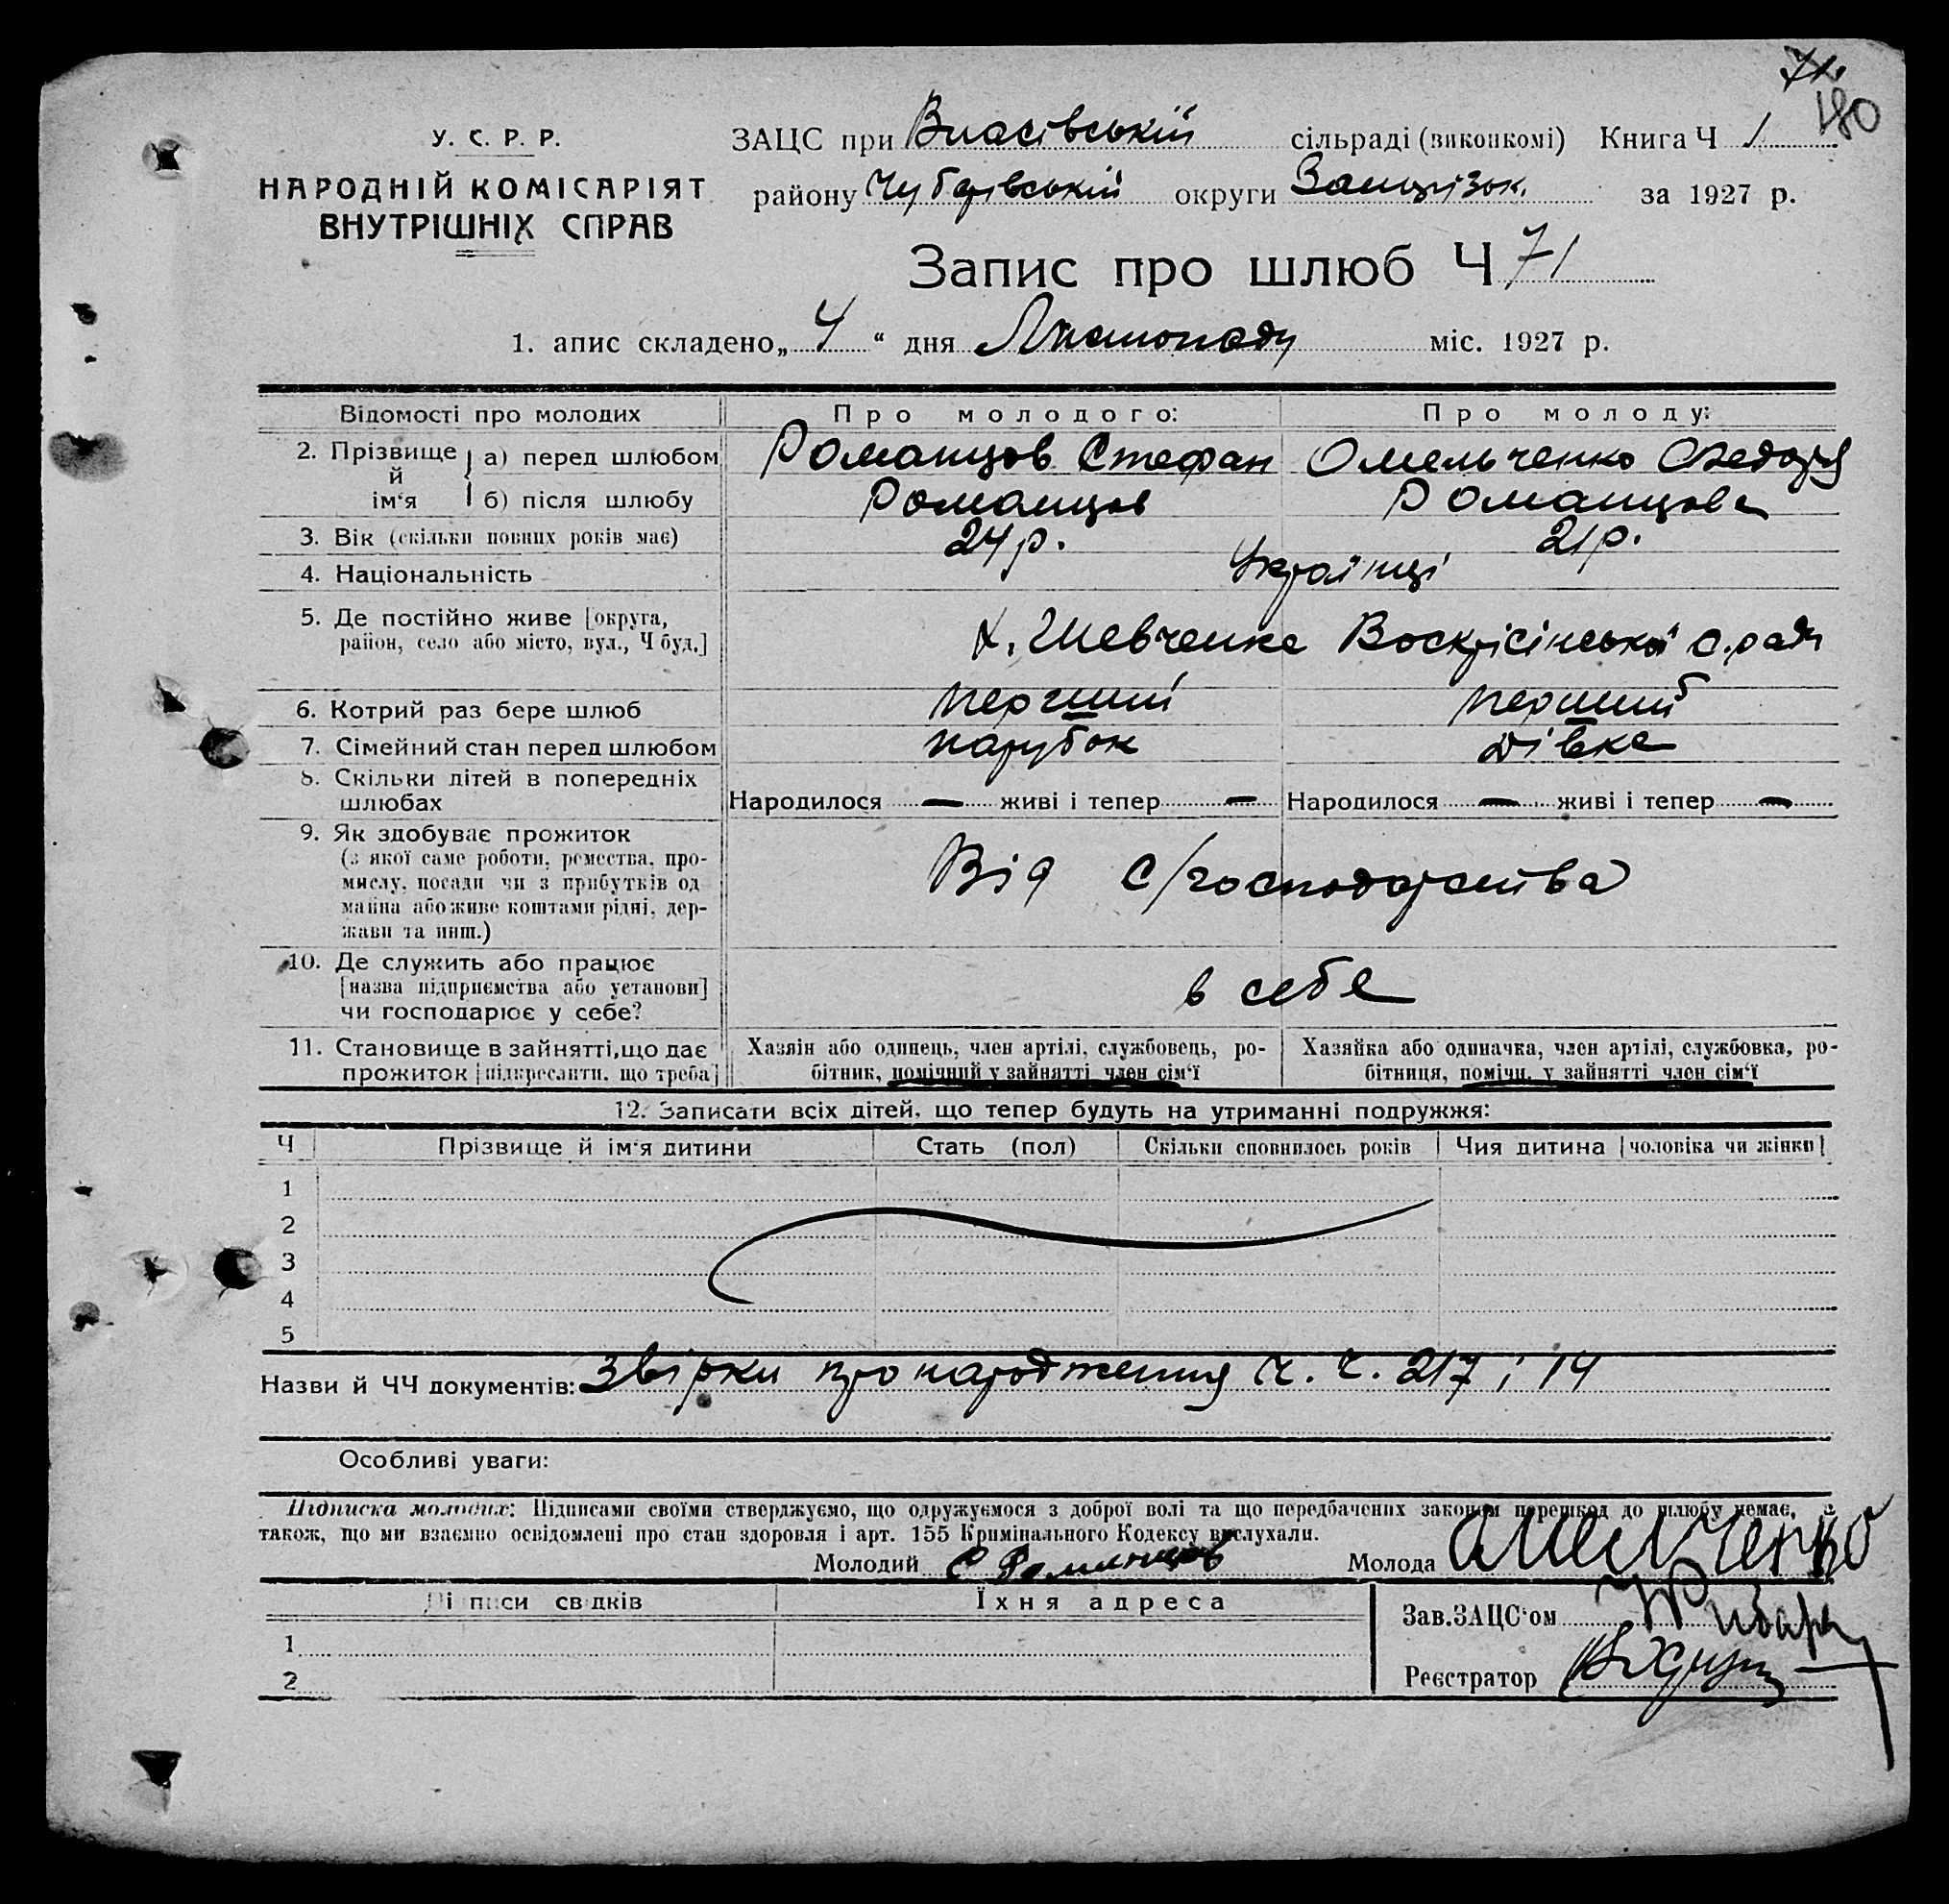 71.
180
У. С. Р. Р.
НАРОДНІЙ КОМІСАРІЯТ
ВНУТРІШНІХ СПРАВ
ЗАЦС при Власівській сільраді (виконкомі) Книга Ч 1
району Чубарівській округи Запорізьк. за 1927 р.
Запис про шлюб Ч 71
1. апис складено „ 4 “ дня Листопаду міс. 1927 р.
Відомості про молодих
Про молодого:
Про молоду:
2. Прізвище й ім‘я
а) перед шлюбом Романцов Стефан Омельченко Федора
б) після шлюбу Романцов Романцова
3. Вік (скільки повних років має) 24 р. 21 р.
4. Національність Українці
5. Де постійно живе [округа,
район, село або місто, вул., Ч буд.] х. Шевченка Воскрісінської с.ради
6. Котрий раз бере шлюб перший перший
7. Сімейний стан перед шлюбом парубок дівка
8. Скільки дітей в попередніх
шлюбах Народилося — живі і тепер — Народилося — живі і тепер —
9. Як здобуває прожиток
(з якої саме роботи, ремества, про-
мислу, посади чи з прибутків од
майна або живе коштами рідні, дер-
жави та инш.)
Від с/господарства
10. Де служить або працює
[назва підприємства або установи]
чи господарює у себе?
в себе
11. Становище в зайнятті, що дає
прожиток [підкреслити, що треба]
Хазяін або одинець, член артілі, службовець, ро-
бітник, помічний у зайнятті член сім‘ї
Хазяйка або одиначка, член артілі, службовка, ро-
бітниця, помічн. у зайнятті член сім‘ї
12. Записати всіх дітей, що тепер будуть на утриманні подружжя:
Ч Прізвище й ім‘я дитини Стать (пол) Скільки сповнилось років Чия дитина [чоловіка чи жінки]
1
2
3
4
5
Назви й ЧЧ документів: Звірки про народження ч. ч. 217 і 14
Особливі уваги:
Підписка молодих: Підписами своїми стверджуємо, що одружуємося з доброї волі та що передбачених законом перешкод до шлюбу немає, а
також, що ми взаємно освідомлені про стан здоровля і арт. 155 Кримінального Кодексу вислухали.
Молодий С Романцов Молода Омельченко
Пі писи св дків Їхня адреса
1
2
Зав. ЗАЦС‘ом
Реєстратор